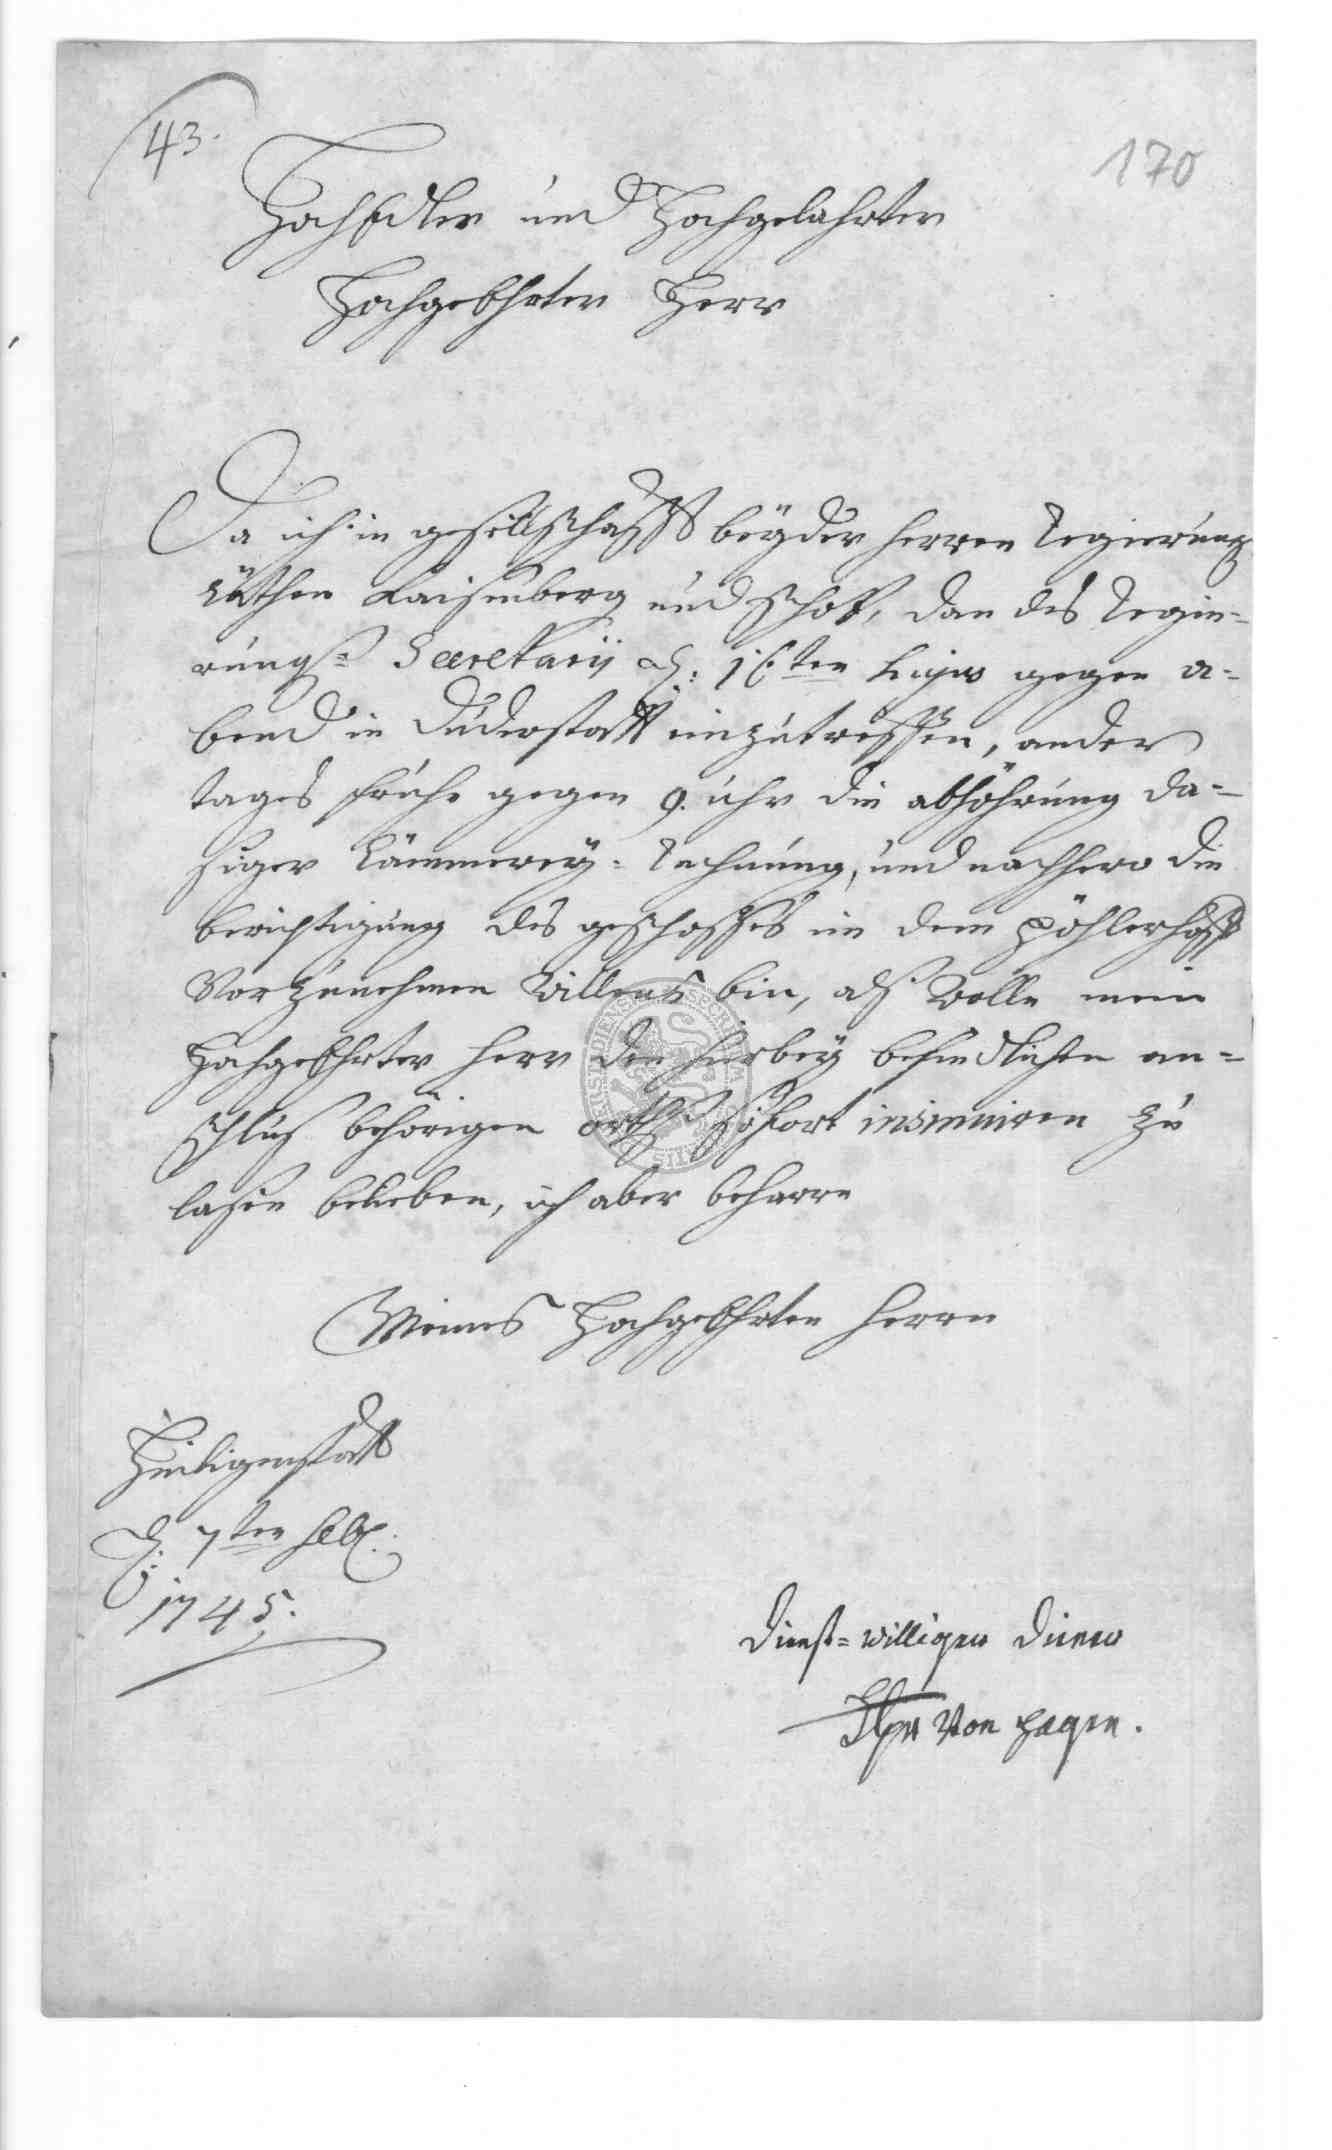 43.
170
HochEdler und Hochgelahrter
HochgeEhrter Herr
Da ich in gesellschafft beyder herren Regierungs
Räthen Kaisenberg und Schott, dan des Regie-
rungs- Secretarii d: 16ten hujus gegen a-
bend in Duderstatt einzutreffen, ander
tages frühe gegen 9. uhr die abhöhrung da-
siger Cämmerey-Rechnung, und nachhero die
berichtigung des geschosses in dem
Vorzunehmen Willens bin, alß Wolle mein
HochgeEhrter herr den hierbey befindlichen an-
schluß behörigen orths sofort insinuiren zu
laßen belieben, ich aber beharre
Meines HochgeEhrten Herrn
Heiligenstatt
d. 7ten
1745.
Dienst-williger Diener
Von Hagen.